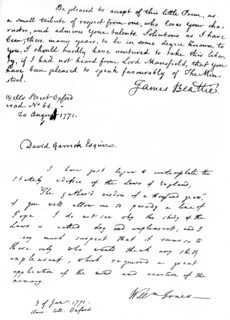 Be pleased to accept of this little Poem, as
a small tribute of respect from one, who loves your cha-
racter, and admires your talents. Solicitous as I have
been, these many years, to be in some degree known to
you, I should hardly have ventured to take this liber-
ty, if I had not heard from Lord Mansfield, that you
have been pleased to speak favourably of The Min-
strel.
James Beattie
Wells Street Oxford
road. No. 64.
20 August 1771.
David Garrick Esquire.
I have just begun to contemplate the
stately edifice of the laws of England,
"The gather'd wisdom of a thousand years,"
if you will allow me to parody a line of
Pope. I do not see why the study of the
Laws is called dry and unpleasant, and I
very much suspect that it seems so to
those only who would think any study
unpleasant, which required a great
application of the mind and exertion of the
memory.
Will^m Jones
3^d of Jan^y 1771.
Univ. Coll. Oxford.